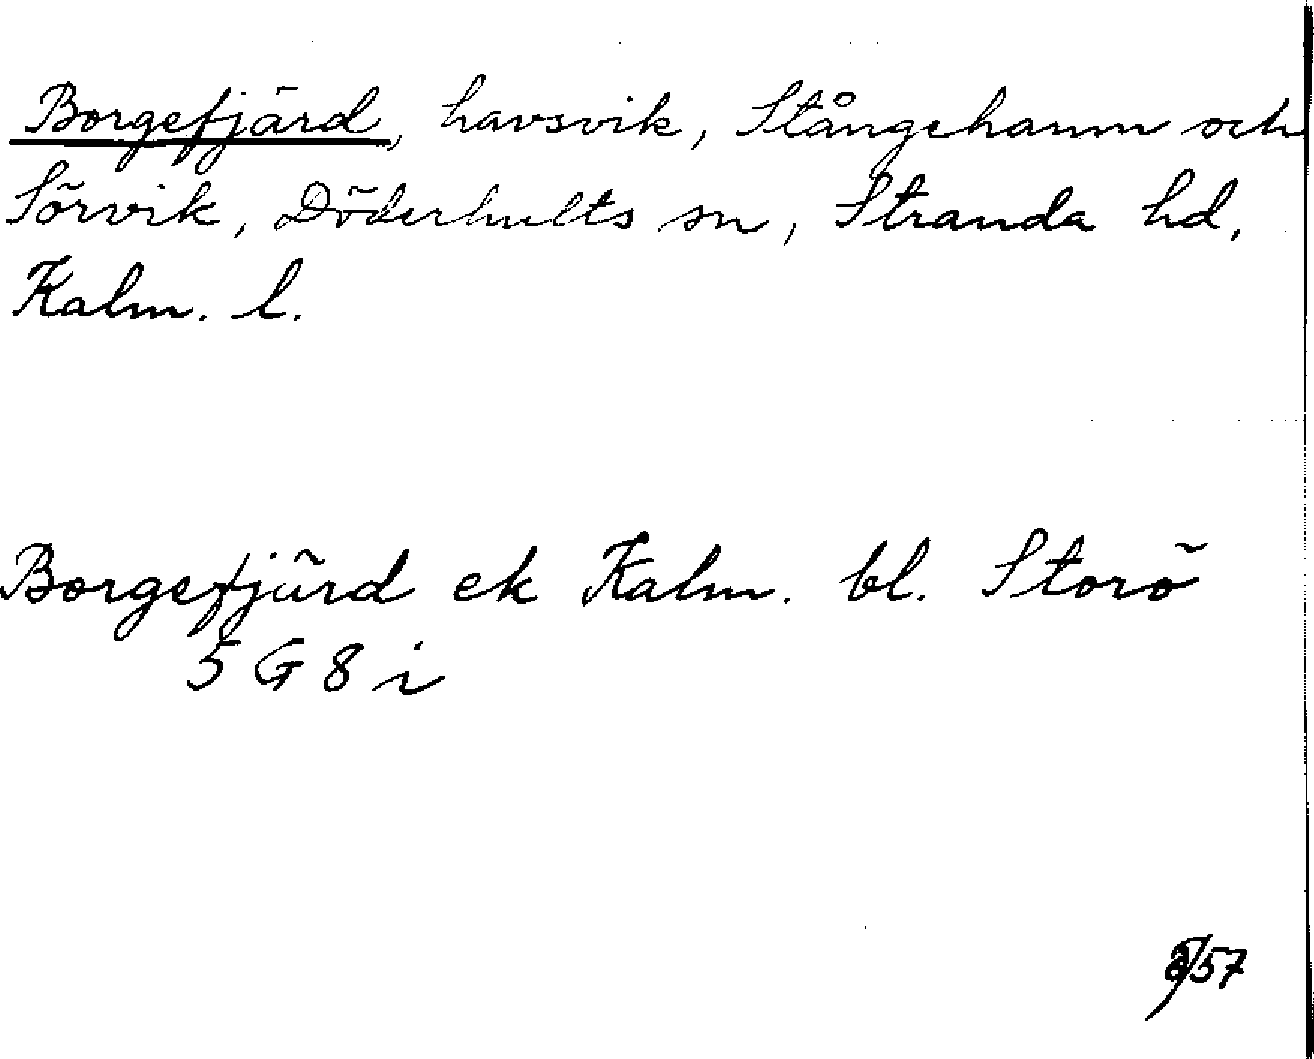 Borgefjärd, havsvik, Stångehamn och
Sörvik, Döderhults sn, Stranda hd,
Kalm. l.
Borgefjärd ek Kalm. bl. Storö
5 G 8 i
/57